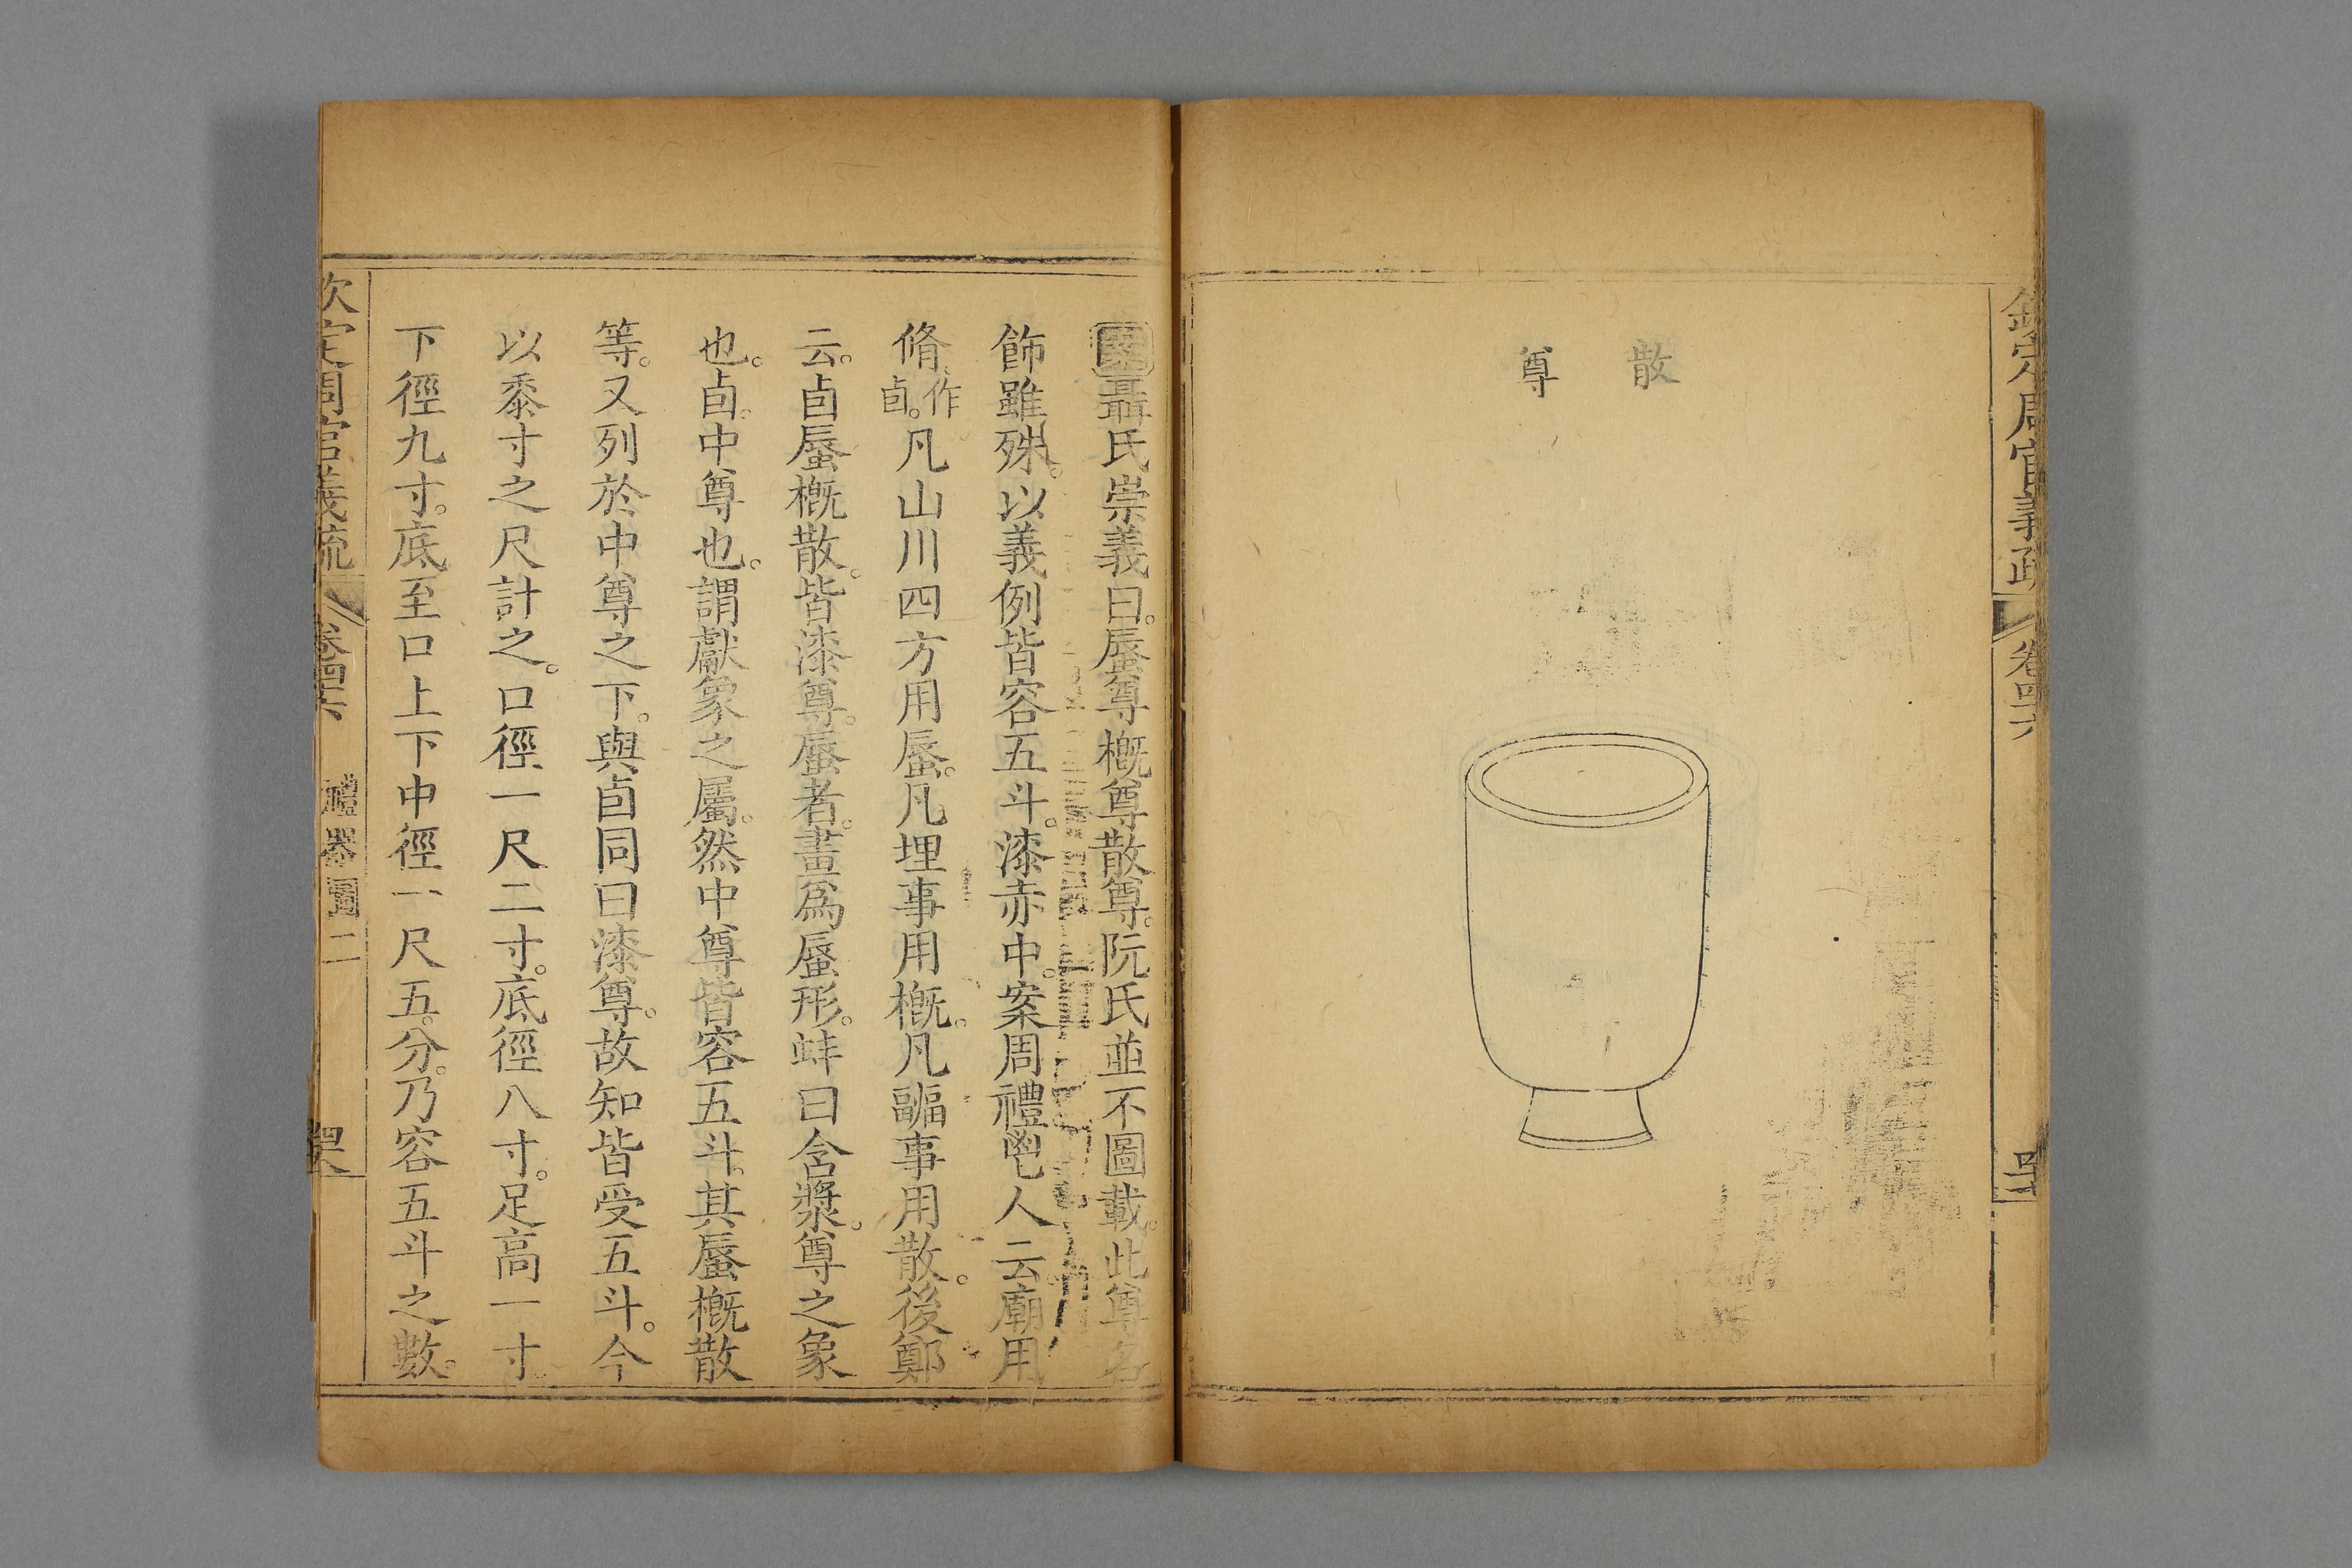 欽定周官義疏
卷四十六
散
尊
聶氏崇義曰。蜃尊概尊散尊。阮氏並不圖載。此尊名
飾雖殊。以義例皆容五斗。漆赤中。案周禮鬯人云廟用
脩作卣。凡山川四方用蜃。凡埋事用概。凡疈事用散。後鄭
云。卣蜃概散。皆漆尊。蜃者。畫爲蜃形。蚌曰含漿。尊之象
也。卣。中尊也。謂獻象之屬。然中尊皆容五斗。其蜃概散
等。又列於中尊之下。與卣同曰漆尊。故知皆受五斗。今
以黍寸之尺計之。口徑一尺二寸。底徑八寸。足高一寸。
下徑九寸。底至口上下中徑一尺五分。乃容五斗之數。
欽定周官義疏
卷四十六
禮器圖二